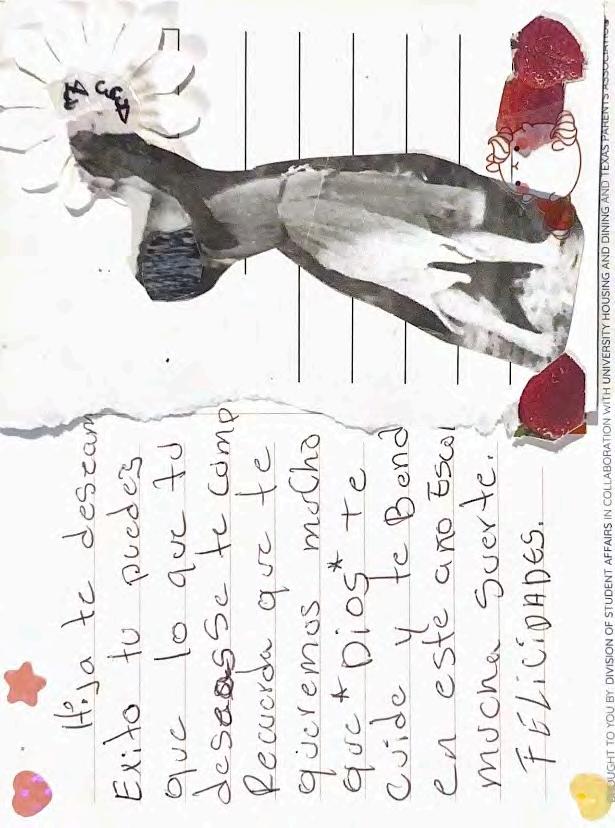 Hija te deseam
Exito tu puedes
que lo que tu
deseas se te cump
Recuerda que te
queremos mucho
que *DIOS* te
Cuide y te Bend
en este año Escol
mucha Suerte.
FELICIDADES.
OUGHT TO YOU BY DIVISION OF STUDENT AFFAIRS IN COLLABORATION WITH UNIVERSITY HOUSING AND DINING AND TEXAS PARENTS ASSOCIATION